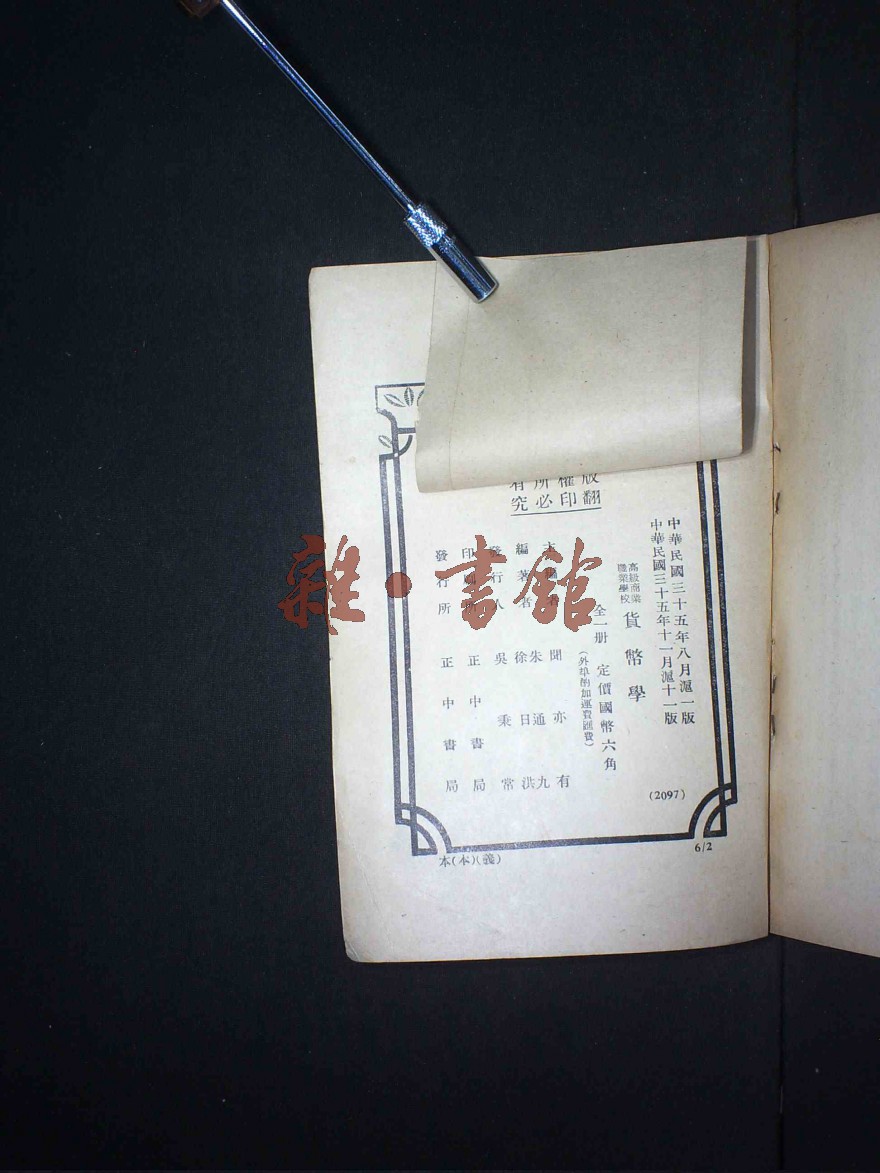 中華民國三十五年八月滬一版
中華民國三十五年十一月滬十一版
高級商業
職業學校
貨幣學
全一册 定價國幣六角
(外埠酌加運費匯費)
版權所有
翻印必究
聞亦有
編著者 朱通九
徐日洪
發行人 吳秉常
印刷所 正中書局
發行所 正中書局
(2097)
6/2
本(本)(義)
雜·書館